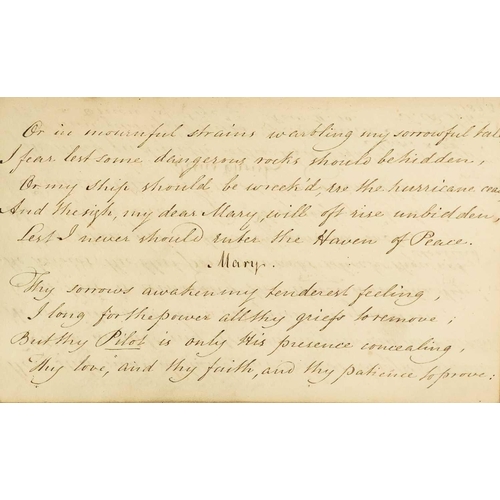 Or in mournful strains warbling my sorrowful tal
I fear lest some dangerous rocks should be hidden,
Or my ship should be wreck'd, ere the hurricane cea
And the sigh, my dear Mary, will oft rise unbidden,
Lest I never should enter the Haven of Peace.
Mary.
Thy sorrows awaken my tenderest feeling,
I long for the power all thy griefs to remove;
But thy Pilot is only His presence concealing,
Thy love, and thy faith, and thy patience to prove: